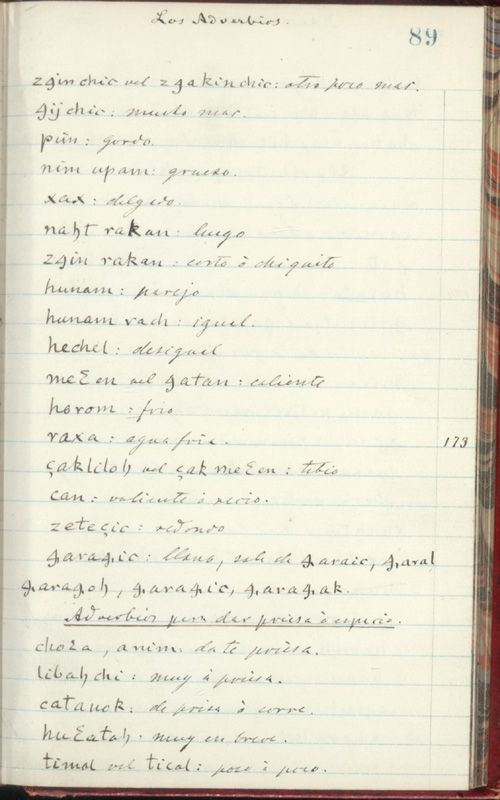 Los Adverbios.
89
zꜯin chic vel zꜯakin chic: otro poco mas.
ꜯij chic: mucho mas.
pün: gordo.
nim upam: grueso.
xax: delgado.
naht rakan: luego
zꜯin rakan: corto ò chiquito
hunam: parejo
hunam vach: igual.
hechel: desigual
meꜪen vel ꜯatan: caliente
horom: frio
raxa: agua fria.
173
çakliloh vel çak meꜪen: tibio
can: valiente ò recio.
zeteçic: redondo
ꜯaraꜯic: llano, sale de ꜯaraic, ꜯaral
ꜯaraꜯoh, ꜯaraꜯic, ꜯaraꜯak.
Adverbios para dar priesa ò espacio.
choꜪa, anim. date priesa.
libahchi: muy à priesa.
catanok: de prisa ò corre.
huꜪatah: muy en breve.
timal vel tical: poco à poco.